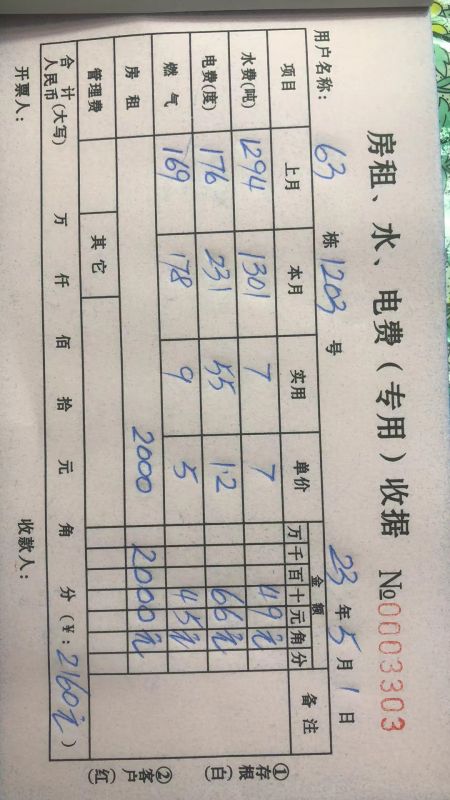 房租、水、电费(专用)收据 №0003303
用户名称: 63 栋 1203 号 23 年 5 月 1 日
项目 上月 本月 实用 单价 金额 备注
万 千 百 十 元 角 分
水费(吨) 1294 1301 7 7 49元
电费(度) 176 231 55 1.2 66元
燃气 169 178 9 5 45元
房租 2000 2000元
管理费 其它
合计(大写)人民币 万 仟 佰 拾 元 角 分(¥: 2160元)
开票人: 收款人:
①存根(白)
②客户(红)